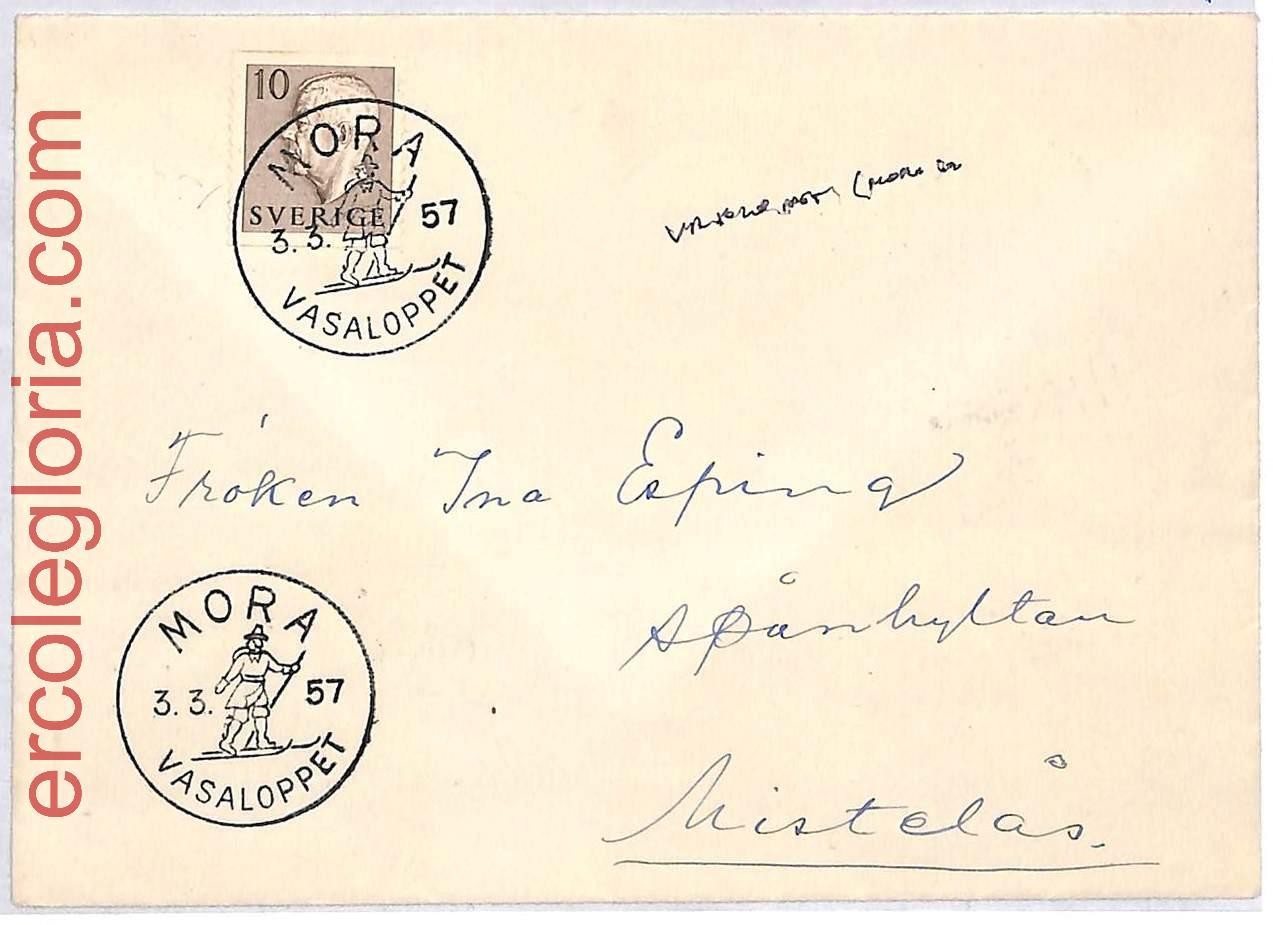 10
SVERIGE
MORA
3. 3. 57
VASALOPPET
Fröken Ina Esping
Spånhyltan
Mistelås.
MORA
3. 3. 57
VASALOPPET
ercolegloria.com